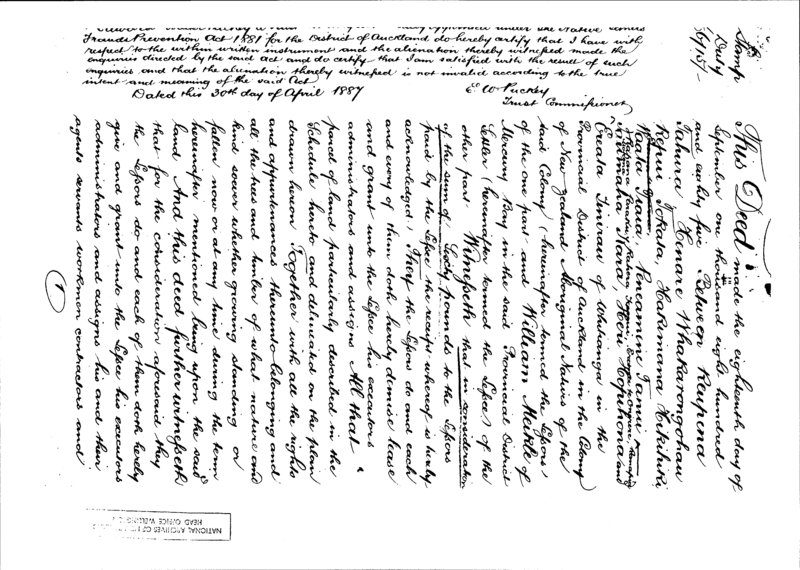 Frauds Prevention Act 1881 for the District of Auckland do hereby certify that I have with
respect to the within written instrument and the alienation thereby witnessed made the
enquiries directed by the said Act and do certify that I am satisfied with the result of such
enquiries and that the alienation thereby witnessed is not invalid according to the true
intent and meaning of the said Act
Dated this 30th day of April 1887
E W Puckey
Trust Commissioner
Stamp
Duty
This Deed made the eighteenth day of
September one thousand eight hundred
and eighty five Between Reupena
Tahura Henare Whakarongohau
Repui Tokata, Hakiriana
Peneamine Tamu
Maraea
and
Ereata Tinirau of Whitianga in the
Provincial District of Auckland in the Colony
of New Zealand Aboriginal Natives of the
said Colony (hereinafter termed the Lessors)
of the one part and William Meikle of
Mercury Bay in the said Provincial District
Settler (hereinafter termed the Lessee) of the
other part Witnesseth that in consideration
of the sum of Sixty pounds to the Lessors
paid by the Lessee (the receipt whereof is hereby
acknowledged) They the Lessors do and each
and every of them doth hereby demise lease
and grant unto the Lessee his executors
administrators and assigns All that
parcel of land particularly described in the
Schedule hereto and delineated on the plan
drawn hereon Together with all the rights
and appurtenances thereunto belonging and
all the trees and timber of what nature and
kind soever whether growing standing or
fallen now or at any time during the term
hereinafter mentioned being upon the said
land And this deed further witnesseth
that for the consideration aforesaid they
the Lessors do and each of them doth hereby
give and grant unto the Lessee his executors
administrators and assigns his and their
agents servants workmen contractors and
1
NATIONAL ARCHIVES OF
HEAD OFFICE WELLING